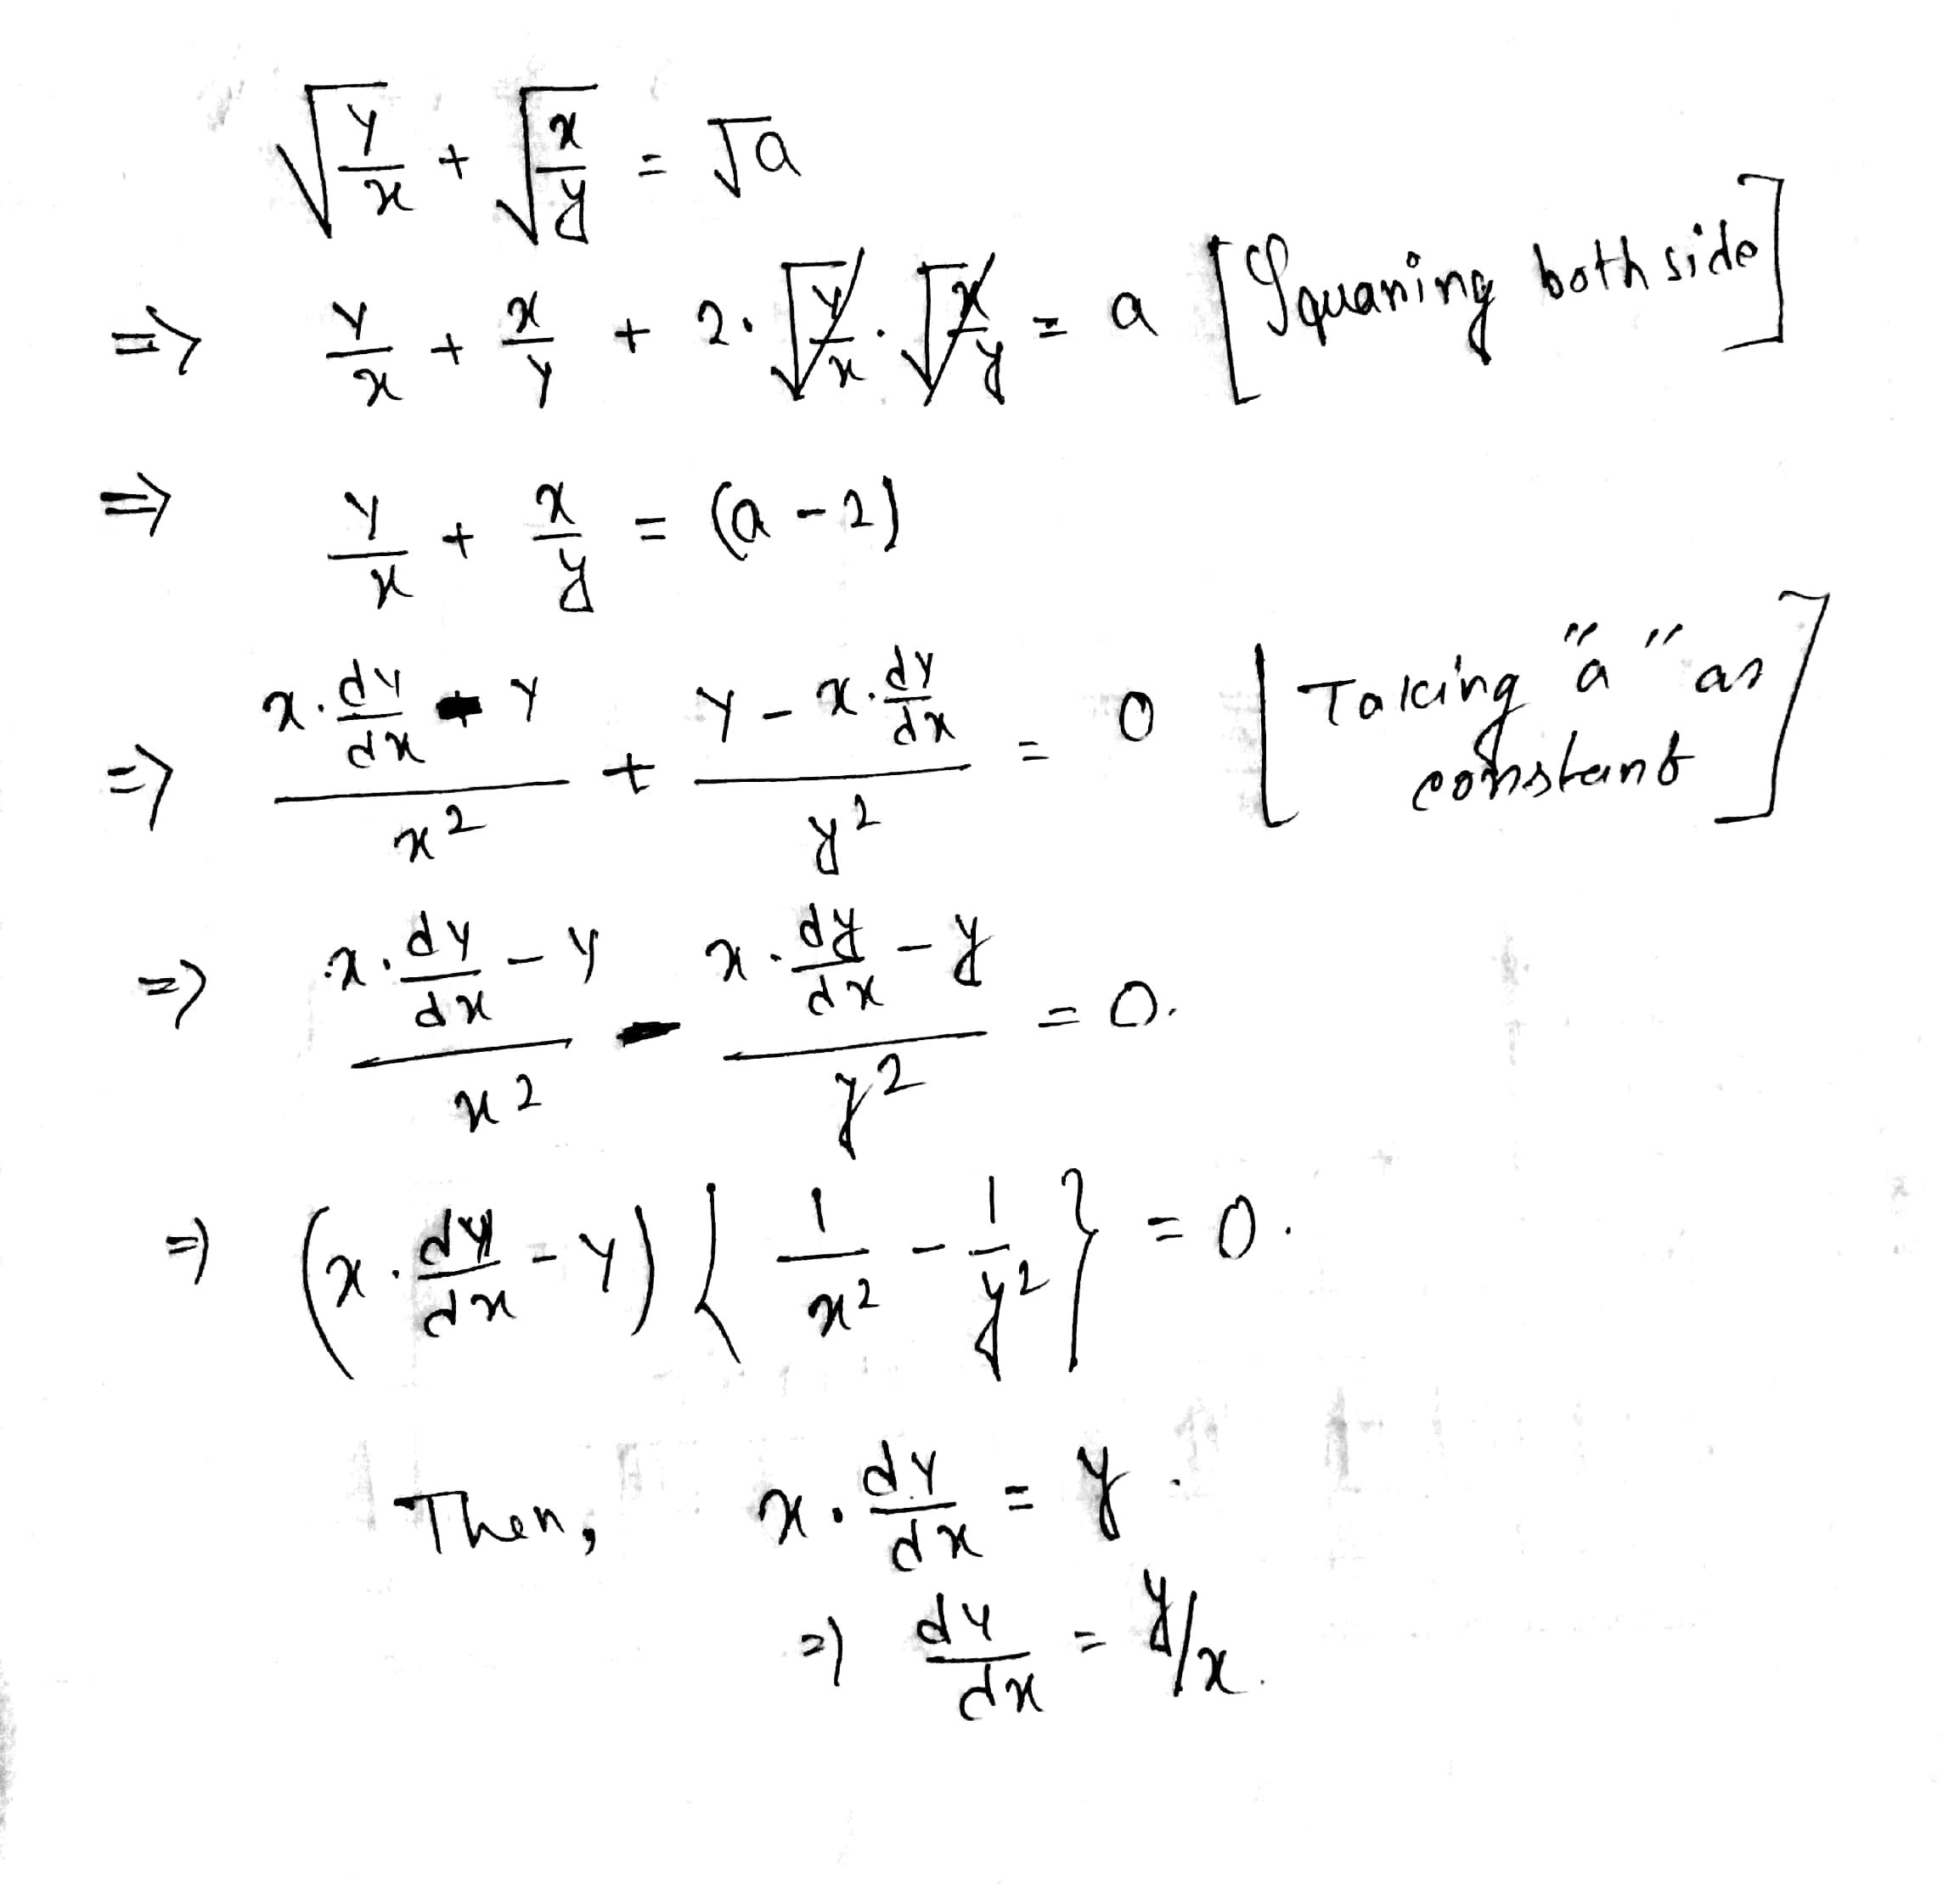 √(y/x) + √(x/y) = √a
⇒ y/x + x/y + 2·√(y/x)·√(x/y) = a [Squaring both side]
⇒ y/x + x/y = (a - 2)
⇒ (x·dy/dx - y)/x² + (y - x·dy/dx)/y² = 0 [Taking "a" as constant]
⇒ (x·dy/dx - y)/x² - (x·dy/dx - y)/y² = 0.
⇒ (x·dy/dx - y){1/x² - 1/y²} = 0.
Then, x·dy/dx = y.
⇒ dy/dx = y/x.